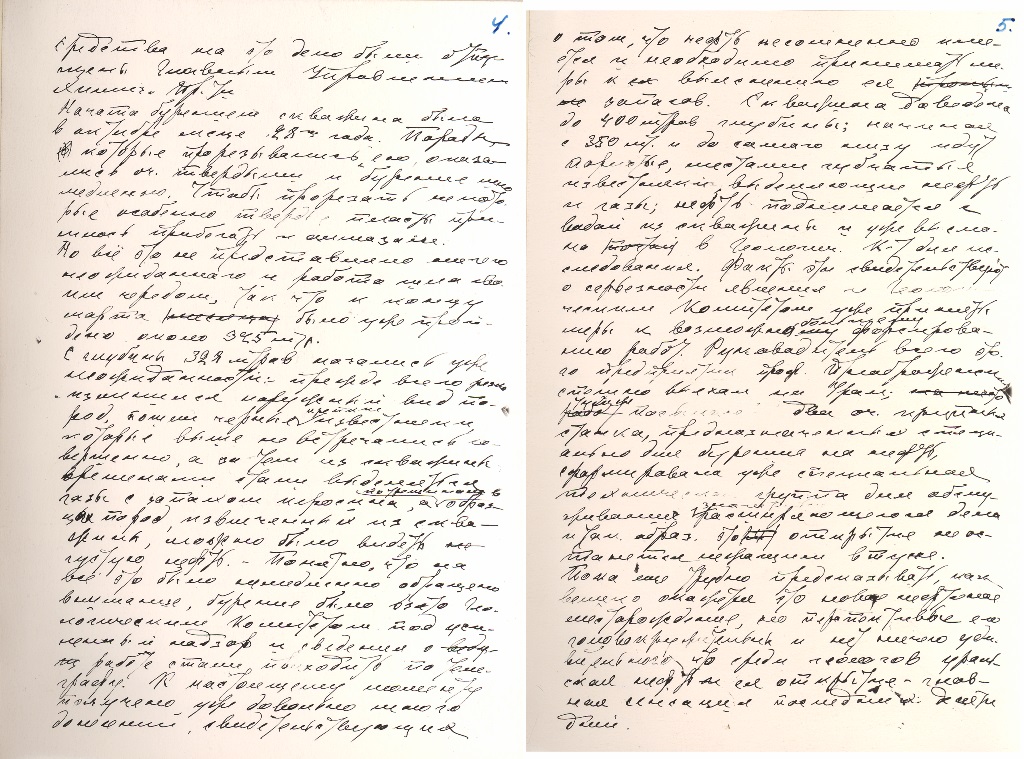 4.
средства на это дело были отпу-
щены Главным Управлением
Начата бурением скважина была
в октябре месяце 28 года. Породы,
которые прорезывались ею, оказа-
лись оч. твердыми и бурение шло
медленно. Чтобы прорезать некото-
рые особенно твердые пласты при-
шлось прибегать к алмазам.
Но всё это не представляло ничего
неожиданного и работа шла сво-
им чередом, так что к концу
марта было уже прой-
дено около 325 мтр.
С глубины 328 мтров начались уже
неожиданности: прежде всего резко
изменился наружный вид по-
род, пошли черные известняки,
которые выше не встречались со-
вершенно, а затем из скважины
временами стали выделяться
газы с запахом керосина, а в образ-
цах пород, извлеченных из сква-
жины, можно было видеть не
густую нефть. - Понятно, что на
всё это было немедленно обращено
внимание, бурение было взято Гео-
логическим Комитетом под уси-
ленный надзор и сведения о
работе стали, поступать по теле-
графу. К настоящему моменту
получено уже довольно много
донесений, свидетельствующих
5.
о том, что нефть несомненно име-
ется и необходимо принимать ме-
ры к выяснению ея
запасов. Скважина доведена
до 400 мтров глубины; начиная
с 350 м. и до самого низу идут
пористые, местами губчатые
известняки, выделяющие нефть
и газы; нефть поднимается с
водой из скважины и уже высла-
на в Геологич. К-т для ис-
следования. Факты эти свидетельствуют
о серьезности явления и Геологи-
ческим Комитетом уже приняты
меры к возможно форсирова-
нию работ. Руководитель всего это-
го предприятия проф. Преображенский
спешно выехал на Урал,
два оч.
станка, предназначенных специ-
ально для бурения на нефть,
сформирована уже специальная
техническая группа для обслу-
живания расширяющегося дела
и так. образ. открытие не ос-
танется
Пока еще трудно предсказывать, как
велико окажется это новое нефтяное
месторождение, но перспективы его
головокружительны и нет ничего уди-
вительного, что среди геологов ураль-
ская нефть и ея открытие - глав-
ная сенсация последних
дней.